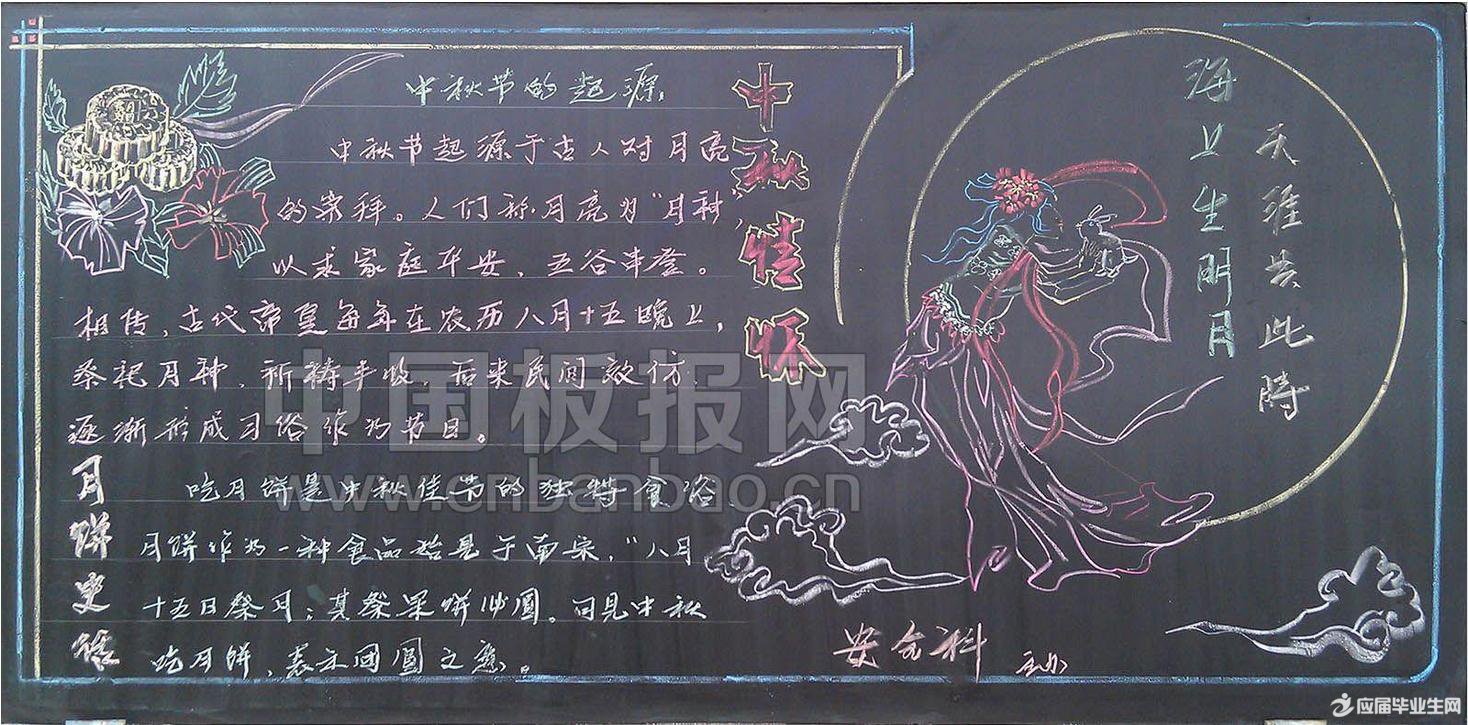 中秋节的起源
中秋节起源于古人对月亮
的崇拜。人们称月亮为“月神”，
以求家庭平安、五谷丰登。
相传，古代帝皇每年在农历八月十五晚上，
祭祀月神、祈祷丰收，后来民间效仿、
逐渐形成习俗作为节日。
吃月饼是中秋佳节的独特食俗、
月饼作为一种食品始是于南宋，“八月
十五日祭月；其祭果饼必圆。可见中秋
吃月饼，表示团圆之意。
月饼史话
中秋佳
海上生明月
天涯共此時
安全科 主办
中国板报网
www.cnbanbao.cn
应届毕业生网